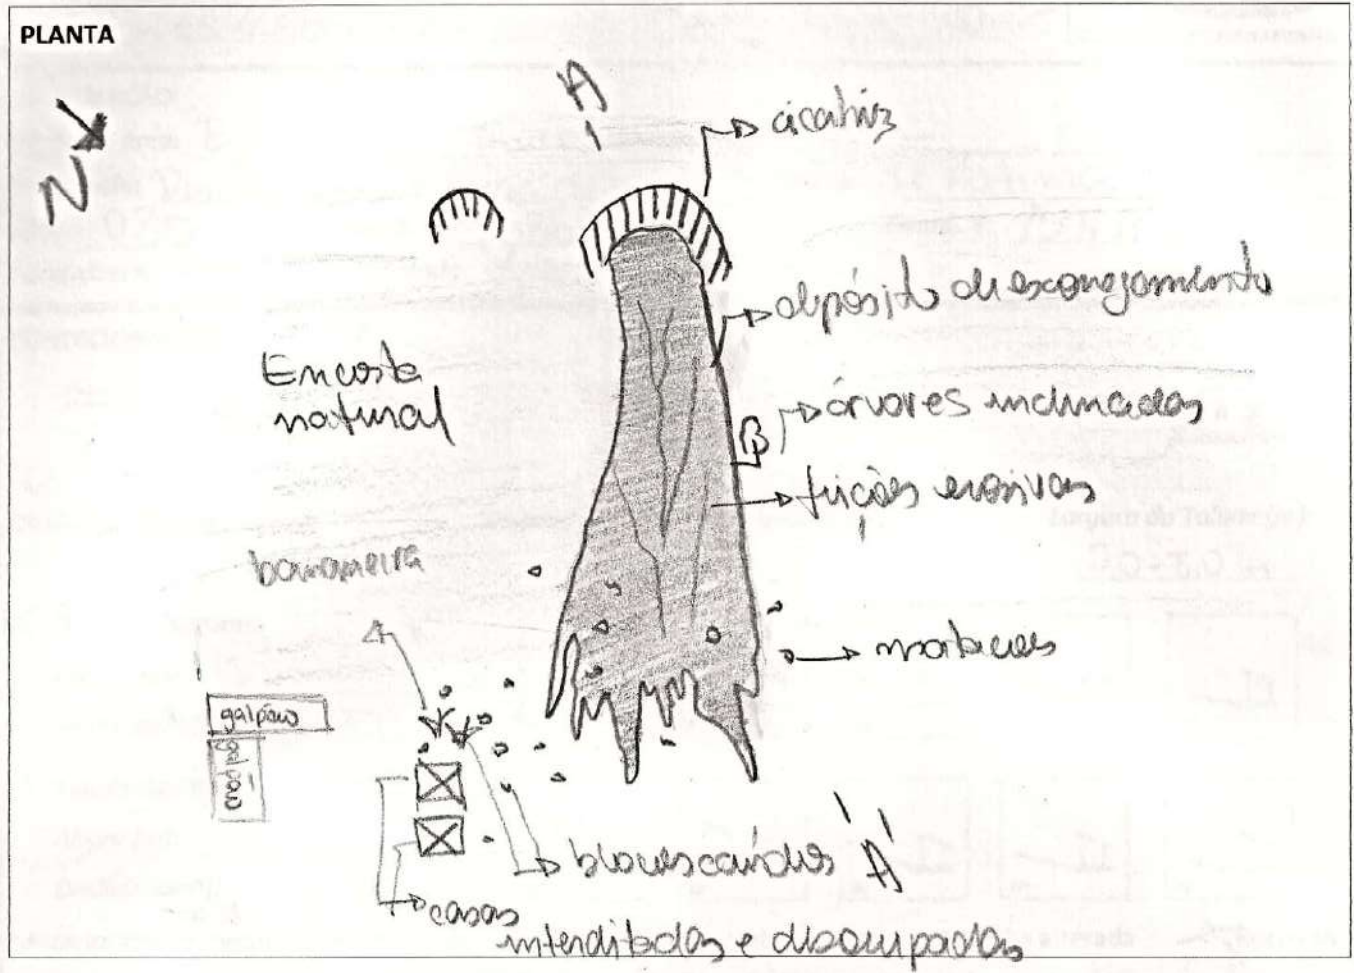 PLANTA
N
A
cicatriz
depósito de escorregamento
Encosta
natural
árvores inclinadas
B
feições erosivas
bananeira
matacões
galpão
galpão
blocos caídos
A'
casas
interditadas e desocupadas